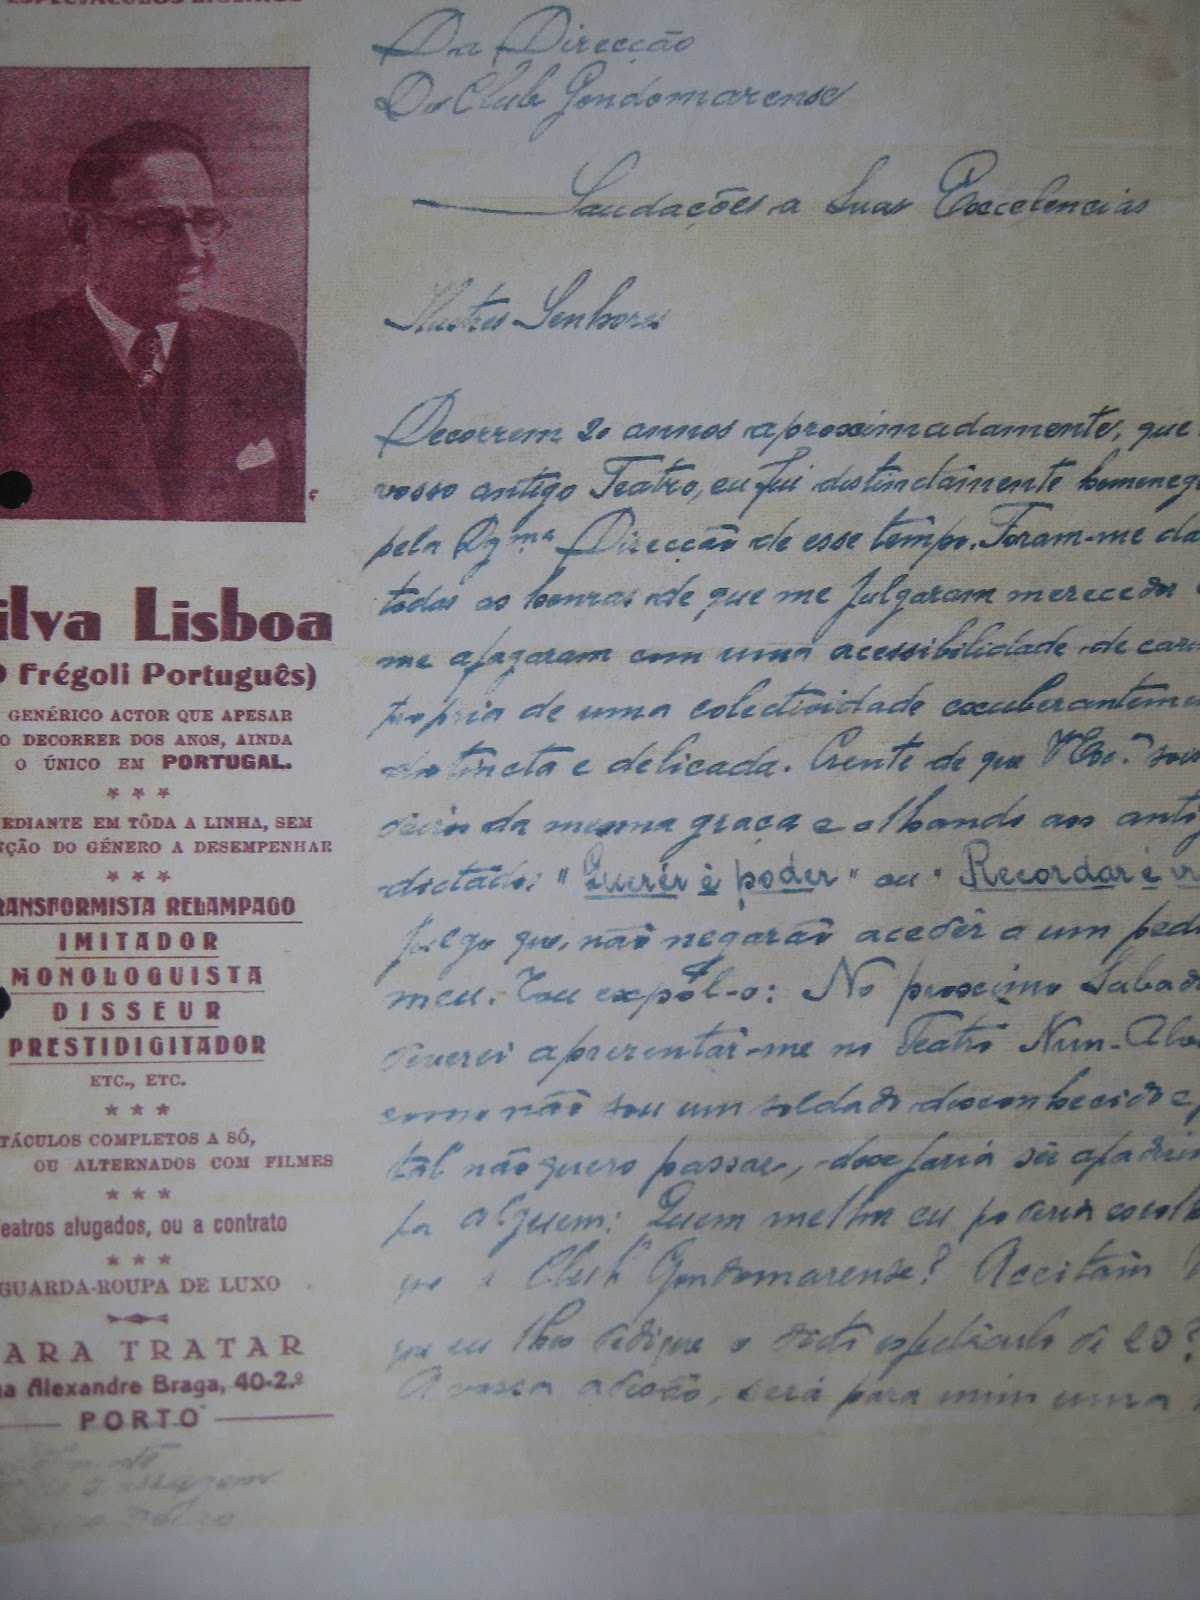 ESPECTÁCULOS LIGEIROS
ilva Lisboa
O Frégoli Português)
GENÉRICO ACTOR QUE APESAR
O DECORRER DOS ANOS, AINDA
O ÚNICO EM PORTUGAL.
* * *
EDIANTE EM TÔDA A LINHA, SEM
NÇÃO DO GÉNERO A DESEMPENHAR
* * *
RANSFORMISTA RELAMPAGO
IMITADOR
MONOLOGUISTA
DISSEUR
PRESTIDIGITADOR
ETC., ETC.
* * *
TÁCULOS COMPLETOS A SÓ,
OU ALTERNADOS COM FILMES
* * *
eatros alugados, ou a contrato
* * *
GUARDA-ROUPA DE LUXO
ARA TRATAR
ua Alexandre Braga, 40-2.º
PORTO
Direcção
Do Club Gondomarense
Saudações a Suas Excelencias
Ilustres Senhores
Decorrem 20 annos aproximadamente, que
vosso antigo Teatro, eu fui distindamente homeneg
pela Dg.ma Direcção de esse tempo. Foram-me da
todas as honras de que me julgaram merecedor e
me afagaram com uma acessibilidade de car
propria de uma colectividade exuberantem
distincta e delicada. Crente de que V. Exc.as
da mesma graça e olhando aos antig
dictado: "Querêr é poder" ou "Recordar é vi
julgo que, não negarão acedêr a um ped
meu. Vou expôl-o: No proximo Sabado
deverei apresentar-me no Teatro Nun-Alva
como não sou um soldado desconhecido e,
tal não quero passar, desejaria sêr apadrin
por alguem: Quem melhor eu poderia escolh
que o Club Gondomarense? Aceitam
que eu lhes dedique o dito espectáculo de 20?
A vossa adesão, será para mim uma